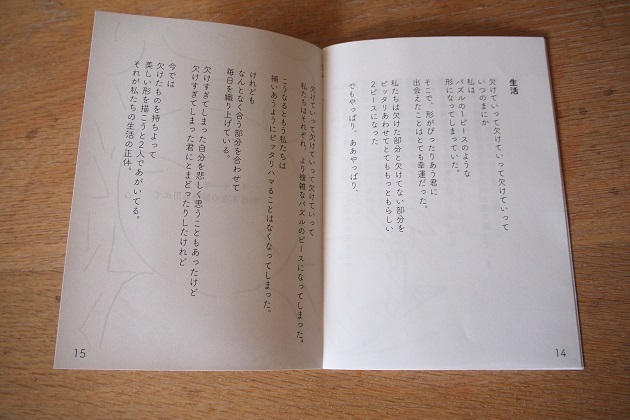 生活
欠けていって欠けていって欠けていって
いつのまにか
私は
パズルの一ピースのような
形になってしまっていた。
そこで、形がぴったりあう君に
出会えたことはとても幸運だった。
私たちは欠けた部分と欠けてない部分を
ピッタリあわせてとてももっともらしい
2ピースになった
でもやっぱり、ああやっぱり、
14
欠けていって欠けていって欠けていって
私たちはそれぞれ、より複雑なパズルのピースになってしまった。
こうなるともう私たちは
補いあうようにピッタリハマることはなくなってしまった。
けれども
なんとなく合う部分を合わせて
毎日を織り上げている。
欠けすぎてしまった自分を悲しく思うこともあったけど
欠けすぎてしまった君にとまどったりしたけれど
今では
欠けたものを持ちよって
美しい形を描こうと2人であがいてる。
それが私たちの生活の正体。
15